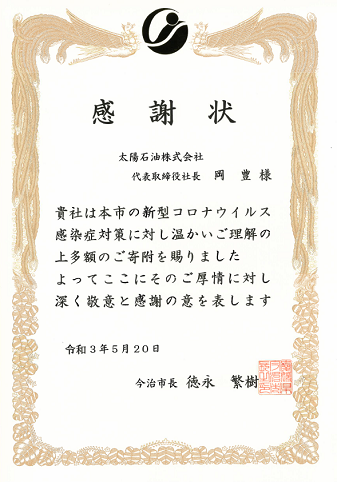 感謝状
太陽石油株式会社
代表取締役社長 岡 豊 様
貴社は本市の新型コロナウイルス
感染症対策に対し温かいご理解の
上多額のご寄附を賜りました
よってここにそのご厚情に対し
深く敬意と感謝の意を表します
令和3年5月20日
今治市長 徳永 繁樹